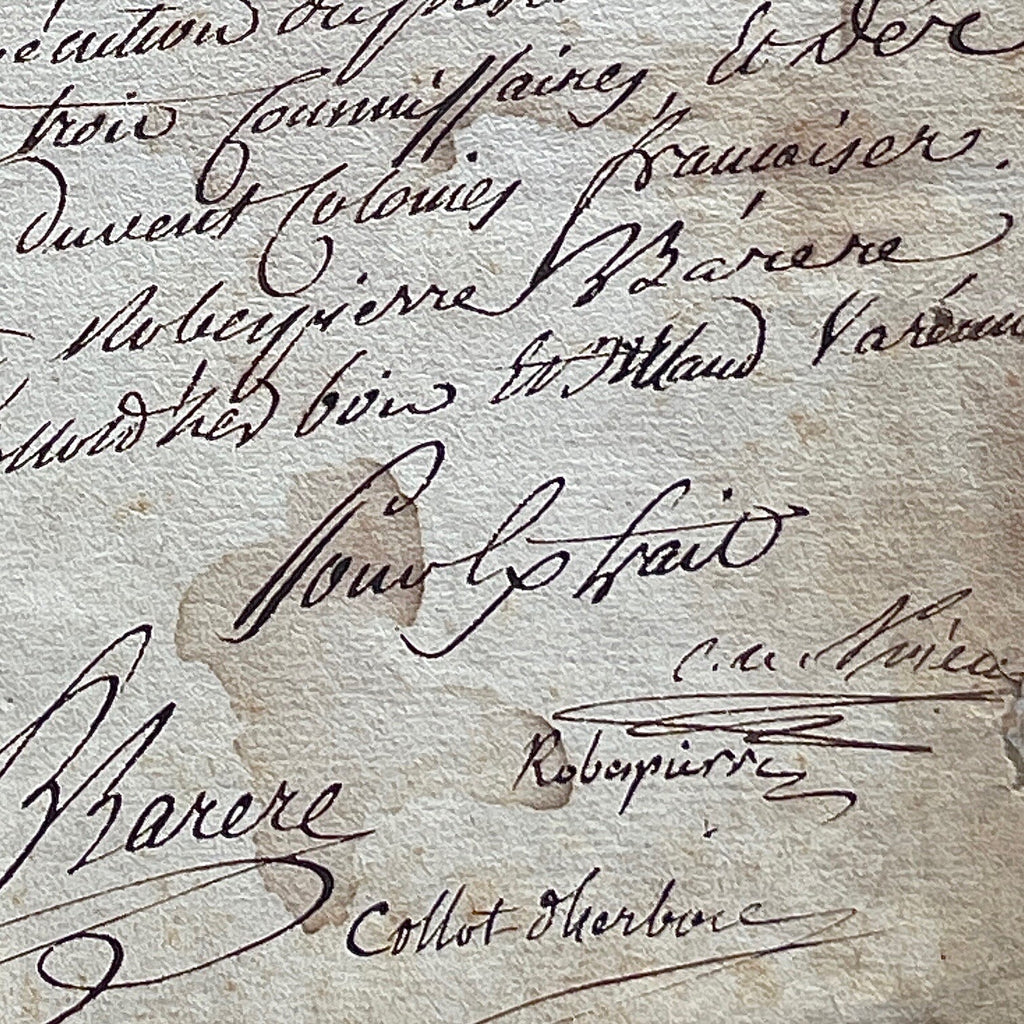 trois Commissaires, et des
Duvent Colonies françaises.
Robespierre Barére
Collot d'her bois et Billaud Varénne
Pour Extrait
C. A. Prieur
Robespierre
Barere
Collot dherbois